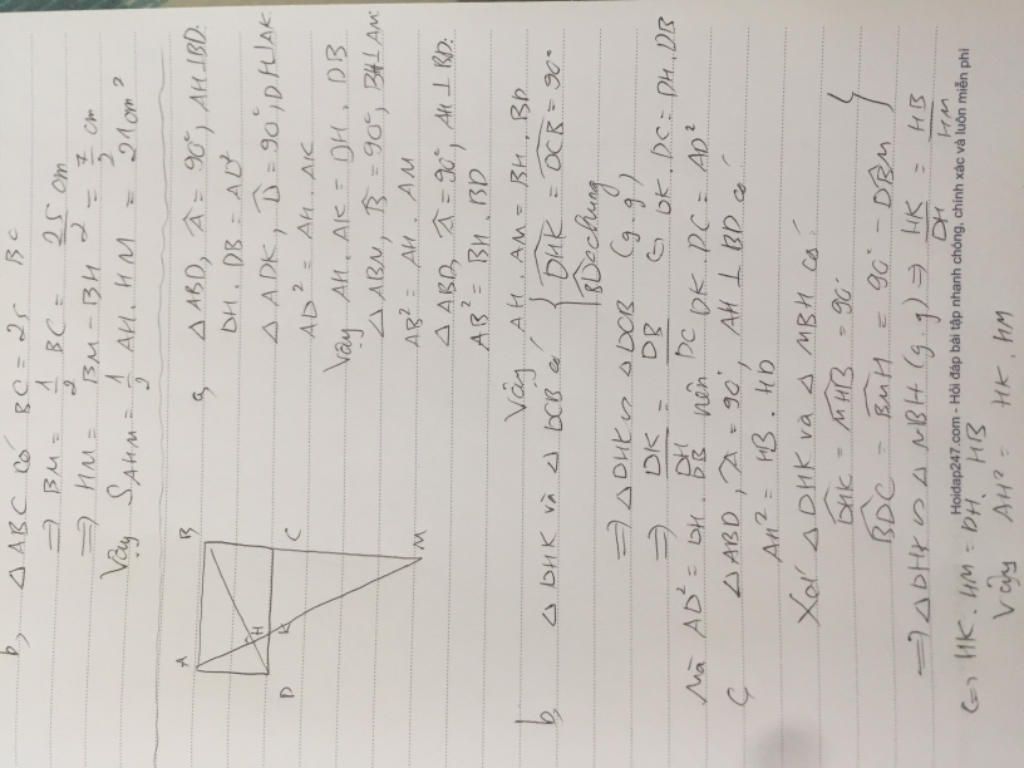 b, △ABC có BC = 25 BC
⇒ BM = 1/2 BC = 25/2 cm
⇒ HM = BM - BH = 7/2 cm
Vậy S_AHM = 1/2 AH. HM = 21cm²
A
B
H
K
D
C
M
a, △ABD, Â = 90°, AH⊥BD:
DH. DB = AD²
△ADK, D̂ = 90°, DH⊥AK
AD² = AH. AK
Vậy AH. AK = DH. DB
△ABM, B̂ = 90°, BH⊥AM:
AB² = AH. AM
△ABD, Â = 90°, AH⊥BD:
AB² = BH. BD
Vậy AH. AM = BH. BD
b, △DHK và △DCB có { DHK = DCB = 90°
BDC chung
⇒ △DHK ∽ △DCB (g.g)
⇒ DK/DH = DB/DC ⇔ DK. DC = DH. DB
Mà AD² = DH. DB nên DK. DC = AD²
C △ABD, Â = 90°, AH ⊥ BD có
AH² = HB. HD
Xét △DHK và △MBH có:
DHK = MHB = 90°
BDC = BMH = 90° - DBM }
⇒ △DHK ∽ △MBH (g.g) ⇒ HK/DH = HB/HM
Hoidap247.com - Hỏi đáp bài tập nhanh chóng, chính xác và luôn miễn phí
⇔ HK. HM = DH. HB
Vậy AH² = HK. HM